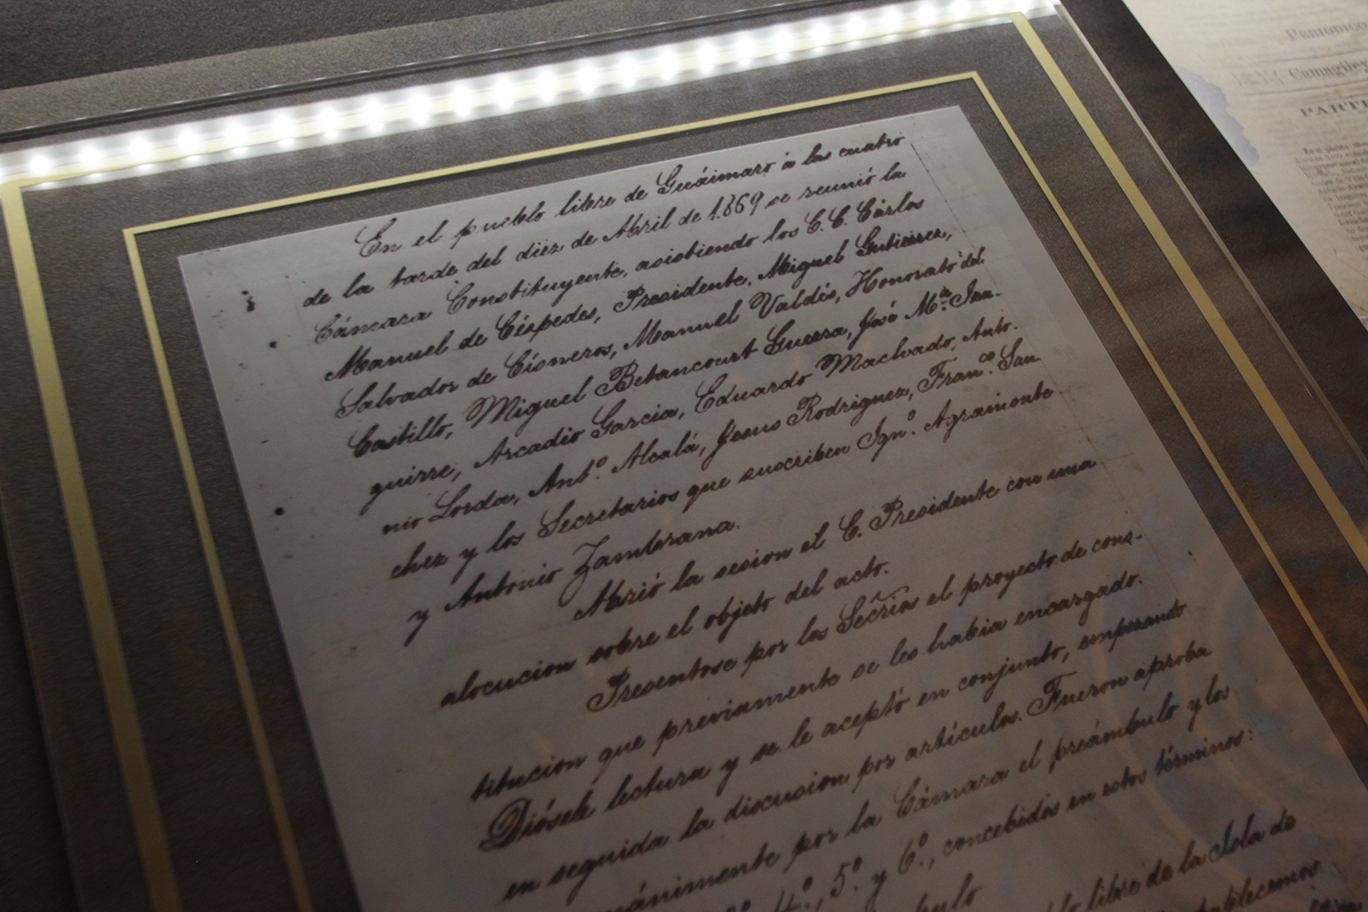 En el pueblo libre de Guáimaro à las cuatro
de la tarde del diez de Abril de 1869 se reunió la
Cámara Constituyente, asistiendo los C. C. Cárlos
Manuel de Céspedes, Presidente, Miguel Gutierrez,
Salvador de Cisneros, Manuel Valdés, Honorato del
Castillo, Miguel Betancourt Guerra, José Mª. Iza-
guirre, Arcadio Garcia, Eduardo Machado, Anto-
nio Lorda, Antº. Alcalá, Jesus Rodriguez, Franº. San
chez y los Secretarios que suscriben Ignº. Agramonte
y Antonio Zambrana.
Abrió la sesion el C. Presidente con una
alocucion sobre el objeto del acto.
Presentose por los Secrios el proyecto de cons-
titucion que previamente se les habia encargado.
Diósele lectura y se le aceptó en conjunto, empezando
en seguida la discusion por artículos. Fueron aproba
unánimemente por la Cámara el preámbulo y los
4º., 5º. y 6º., concebidos en estos términos:
libre de la Isla de
PERIODICO
Camagüey
PARTE